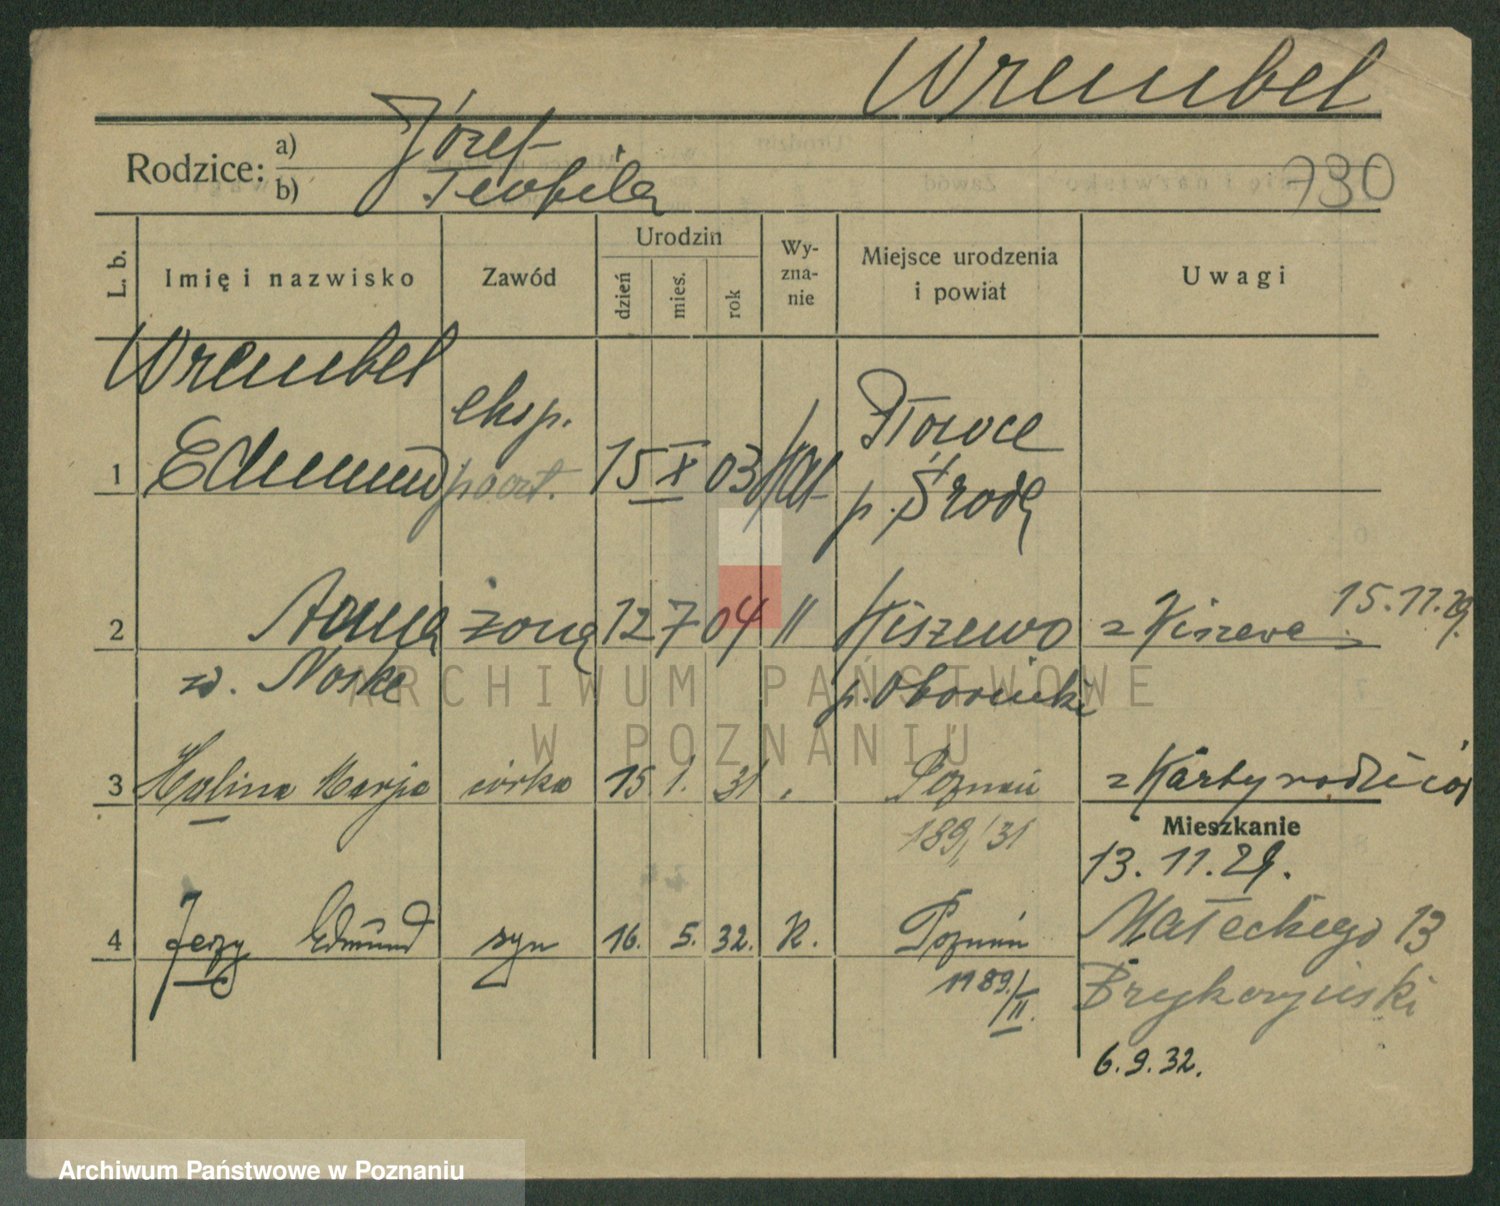 Wrembel
Rodzice: a) Józef
b) Teofila
730
L. b. Imię i nazwisko Zawód Urodzin dzień mies. rok Wy-zna-nie Miejsce urodzenia i powiat Uwagi
Wrembel eksp.
1 Edmund poczt. 15 X 03 kat Płowce
p. Środa
2 Anna żona 12 7 04 " Kiszewo z Kiszewa 15.11.29.
z d. Noske p. Obornicki
3 Halina Marja córka 15 1. 31 " Poznań z Karty rodziców
189/31
Mieszkanie
13.11.29.
4 Jerzy Edmund syn 16. 5. 32. K. Poznań Małeckiego 13
1189/II.
6.9.32.
ARCHIWUM PAŃSTWOWE
W POZNANIU
Archiwum Państwowe w Poznaniu